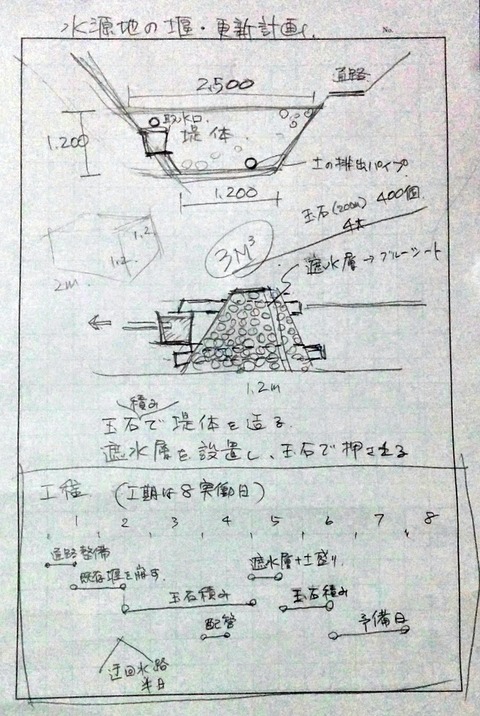 水源地の堰・更新計画
No.
2,500
道路
取水口
堤体
1.200
土の排出パイプ
1.200
玉石(200㎜) 400個
3M³
遮水層→ブルーシート
1.2
1.2
2m
1.2m
玉石積みで堤体を造る
遮水層を設置し、玉石で押さえる
工程 (工期は8実働日)
1 2 3 4 5 6 7 8
道路整備
遮水層+土盛り
既存堰を崩す
玉石積み
玉石積み
配管
予備日
迂回水路
半日